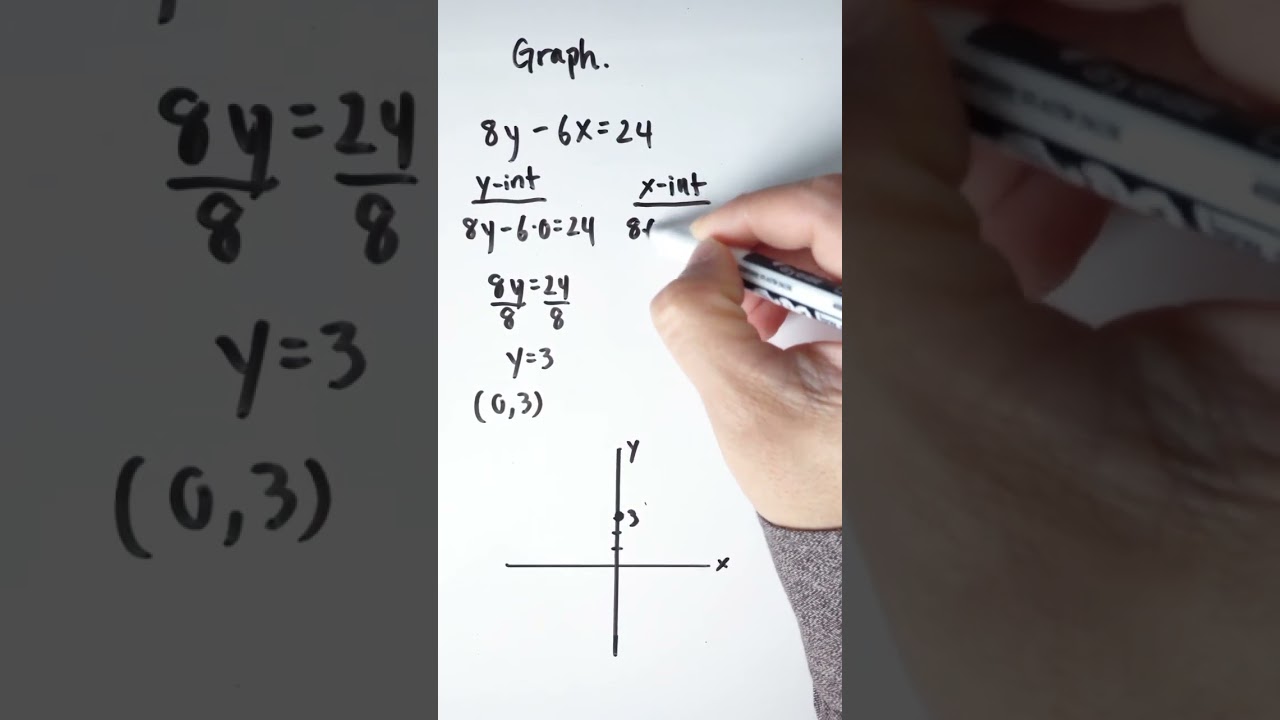 Graph.
8y - 6x = 24
y-int
x-int
8y - 6·0 = 24
8·
8y = 24
8 8
y = 3
(0,3)
y
3
x
8y = 24
8 8
y = 3
(0,3)